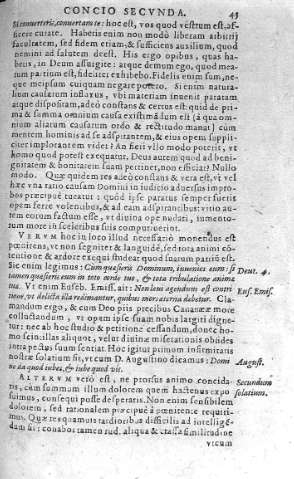 CONCIO SECVNDA. 43
Si conuerteris, conuertam te: hoc est, vos quod vestrum est, ef-
ficere curate. Habetis enim non modò liberam arbitrij
facultatem, sed fidem etiam, & sufficiens auxilium, quod
nemini ad salutem deest. His ergo opibus, quas ha-
betis, in Deum assurgite: atque demum ego, quod mea-
rum partium est, fideliter exhibebo. Fidelis enim sum, ne-
que meipsum cuiquam negare potero. Si enim natura-
lium causarum influxus, vbi materiam inuenit paratam
atque dispositam, adeò constans & certus est: quid de pri-
ma & summa omnium causa existimandum est (à qua om-
nium aliarum causarum ordo & rectitudo manat) cùm
mentem hominis ad se adspirantem, & eius opem suppli-
citer implorantem videt? An fieri vllo modo poterit, vt
homo quod potest exequatur, Deus autem quod ad beni-
gnitatem & bonitatem suam pertinet, non efficiat? Nullo
modo. Quæ quidem res adeò constans & vera est, vt vel
hæc vna ratio causam Domini in iudicio aduersus impro-
bos præcipuè tueatur: quòd ipse paratus semper fuerit
opem ferre volentibus, & ad eam adspirantibus: vitio au-
tem eorum factum esse, vt diuina ope nudati, iumento-
rum more in sceleribus suis computruerint.
VERVM hoc in loco illud necessariò monendus est
pœnitens, vt non segniter & languidè, sed tota animi con-
tentione & ardore exequi studeat quod suarum partiū est.
Sic enim legimus: Cùm quæsieris Dominum, inuenies eum: si Deut. 4.
tamen quæsieris eum in toto corde tuo, & tota tribulatione anima
tua. Vt enim Euseb. Emiss. ait: Non leui agendum est contri- Eus. Emiss.
tione, vt delicta illa redimantur, quibus mors æterna debetur. Cla-
mandum ergo, & cum Deo piis precibus Cananææ more
colluctandum, vt opem ipse suam nobis largiri digne-
tur: nec ab hoc studio & petitione cessandum, donec ho-
mo scintillas aliquot, velut diuinæ miserationis obsides
intra pectus suum sentiat. Hæc igitur primùm infirmitatis
nostræ solatium sit, vt cum D. Augustino dicamus: Domi- August.
ne da quod iubes, & iube quod vis.
ALTERVM verò est, ne prorsus animo concida- Secundum
ris, cùm summum illum dolorem quem hactenus expo- solatium.
suimus, consequi posse desperatis. Non enim sensibilem
dolorem, sed rationalem præcipuè à pœnitente requiri-
mus. Quæ res quamuis tardioribus difficilis ad intelligé-
dum sit: conabor tamen rudi aliqua & crassa similitudine
vtcum